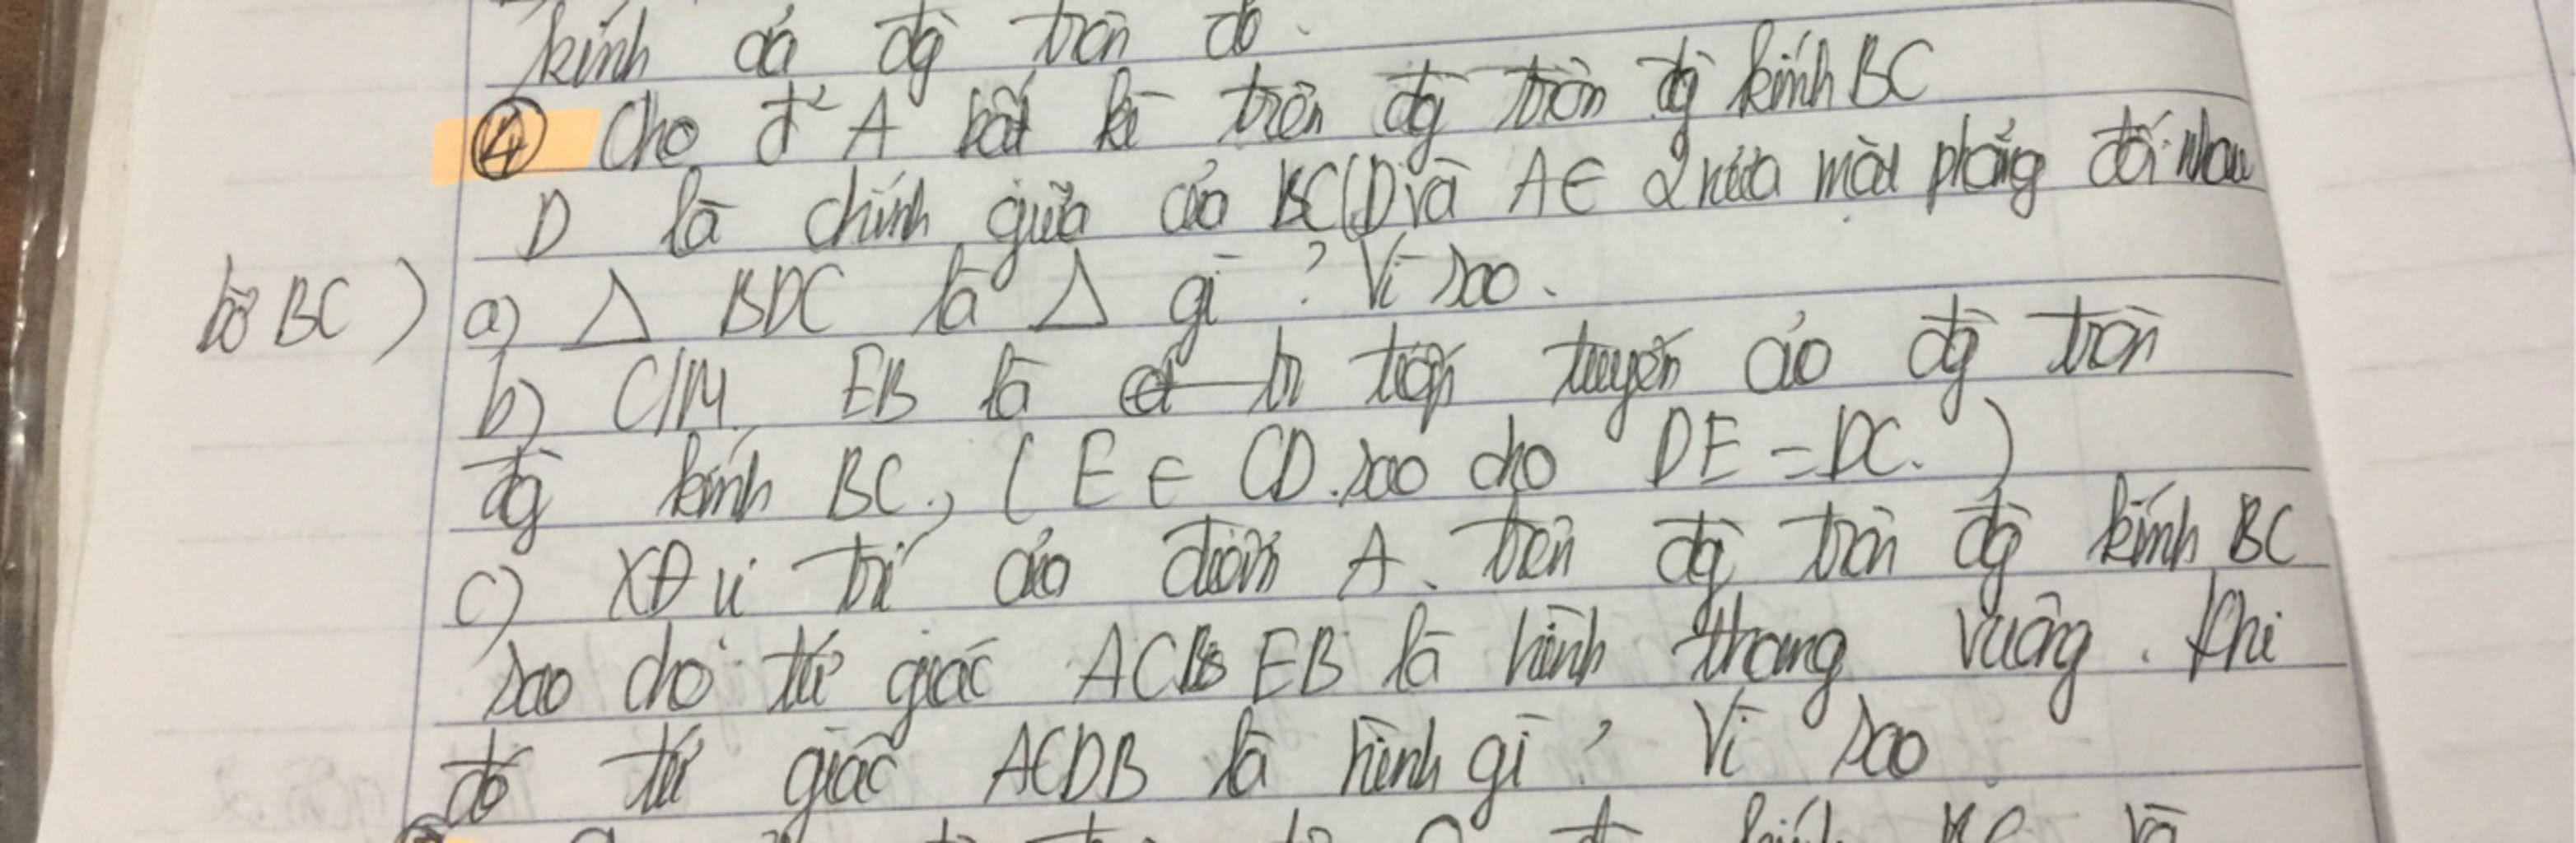 kính của đg tròn đó.
④ Cho đ' A bất kì trên đg tròn đg kính BC
D là chính giữa của BC (D và A ∈ 2 nửa mặt phẳng đối nhau
bờ BC) a) Δ BDC là Δ gì ? Vì sao.
b) C/M EB là tiếp tuyến của đg tròn
đg kính BC, (E ∈ CD sao cho DE = DC.)
c) XĐ vị trí của điểm A trên đg tròn đg kính BC
sao cho tứ giác ACEB là hình thang vuông. Khi
đó tứ giác ACDB là hình gì ? Vì sao